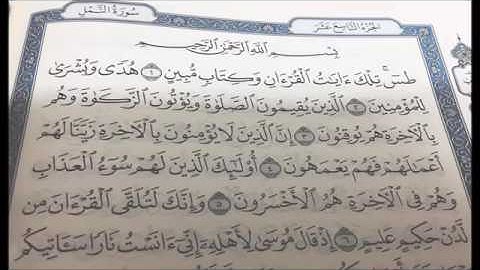 سُورَةُ النَّمْلِ
الجُزْءُ التَّاسِعَ عَشَرَ
بِسْمِ ٱللَّهِ ٱلرَّحْمَٰنِ ٱلرَّحِيمِ
طسٓ تِلْكَ ءَايَٰتُ ٱلْقُرْءَانِ وَكِتَابٍ مُّبِينٍ ١ هُدًى وَبُشْرَىٰ
لِلْمُؤْمِنِينَ ٢ ٱلَّذِينَ يُقِيمُونَ ٱلصَّلَوٰةَ وَيُؤْتُونَ ٱلزَّكَوٰةَ وَهُم
بِٱلْأَخِرَةِ هُمْ يُوقِنُونَ ٣ إِنَّ ٱلَّذِينَ لَا يُؤْمِنُونَ بِٱلْأَخِرَةِ زَيَّنَّا لَهُمْ
أَعْمَٰلَهُمْ فَهُمْ يَعْمَهُونَ ٤ أُو۟لَٰٓئِكَ ٱلَّذِينَ لَهُمْ سُوٓءُ ٱلْعَذَابِ
وَهُمْ فِي ٱلْأَخِرَةِ هُمُ ٱلْأَخْسَرُونَ ٥ وَإِنَّكَ لَتُلَقَّى ٱلْقُرْءَانَ مِن
لَّدُنْ حَكِيمٍ عَلِيمٍ ٦ إِذْ قَالَ مُوسَىٰ لِأَهْلِهِۦٓ إِنِّيٓ ءَانَسْتُ نَارًا سَـَٔاتِيكُم